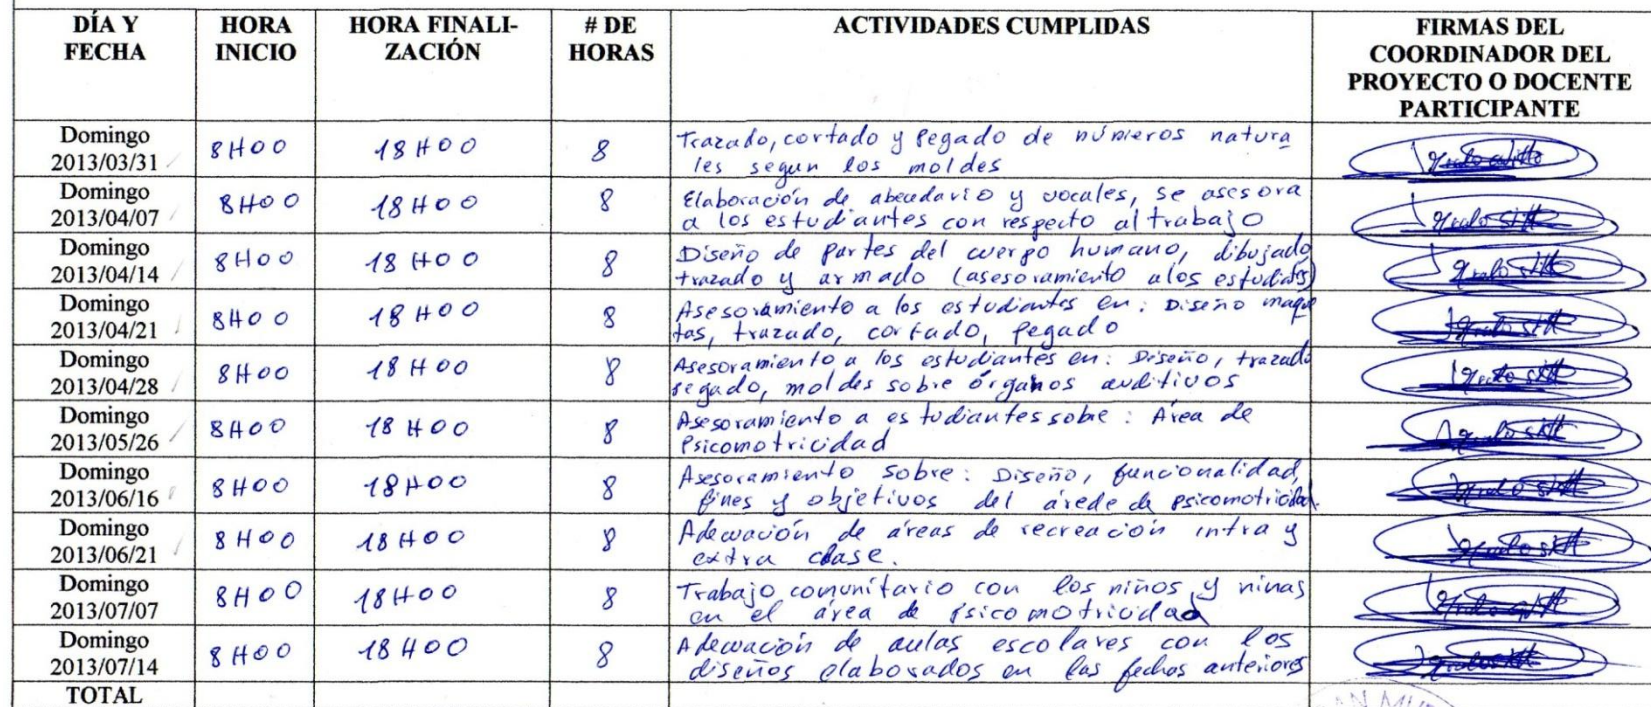 DÍA Y FECHA | HORA INICIO | HORA FINALI-ZACIÓN | # DE HORAS | ACTIVIDADES CUMPLIDAS | FIRMAS DEL COORDINADOR DEL PROYECTO O DOCENTE PARTICIPANTE
Domingo 2013/03/31 | 8H00 | 18H00 | 8 | Trazado, cortado y pegado de números natura
les segun los moldes
Domingo 2013/04/07 | 8H00 | 18H00 | 8 | Elaboración de abecedario y vocales, se asesora
a los estudiantes con respecto al trabajo
Domingo 2013/04/14 | 8H00 | 18H00 | 8 | Diseño de partes del cuerpo humano, dibujado
trazado y armado (asesoramiento a los estudiates)
Domingo 2013/04/21 | 8H00 | 18H00 | 8 | Asesoramiento a los estudiantes en: Diseño maque
tas, trazado, cortado, pegado
Domingo 2013/04/28 | 8H00 | 18H00 | 8 | Asesoramiento a los estudiantes en: Diseño, trazado
pegado, moldes sobre órganos auditivos
Domingo 2013/05/26 | 8H00 | 18H00 | 8 | Asesoramiento a estudiantes sobre: Área de
Psicomotricidad
Domingo 2013/06/16 | 8H00 | 18H00 | 8 | Asesoramiento sobre: Diseño, funcionalidad,
fines y objetivos del árede de psicomotricidad.
Domingo 2013/06/21 | 8H00 | 18H00 | 8 | Adecuación de áreas de recreación intra y
extra clase.
Domingo 2013/07/07 | 8H00 | 18H00 | 8 | Trabajo comunitario con los niños y ninas
en el área de psicomotricidad
Domingo 2013/07/14 | 8H00 | 18H00 | 8 | Adecuación de aulas escolares con los
diseños elaborados en las fechas anteriores
TOTAL